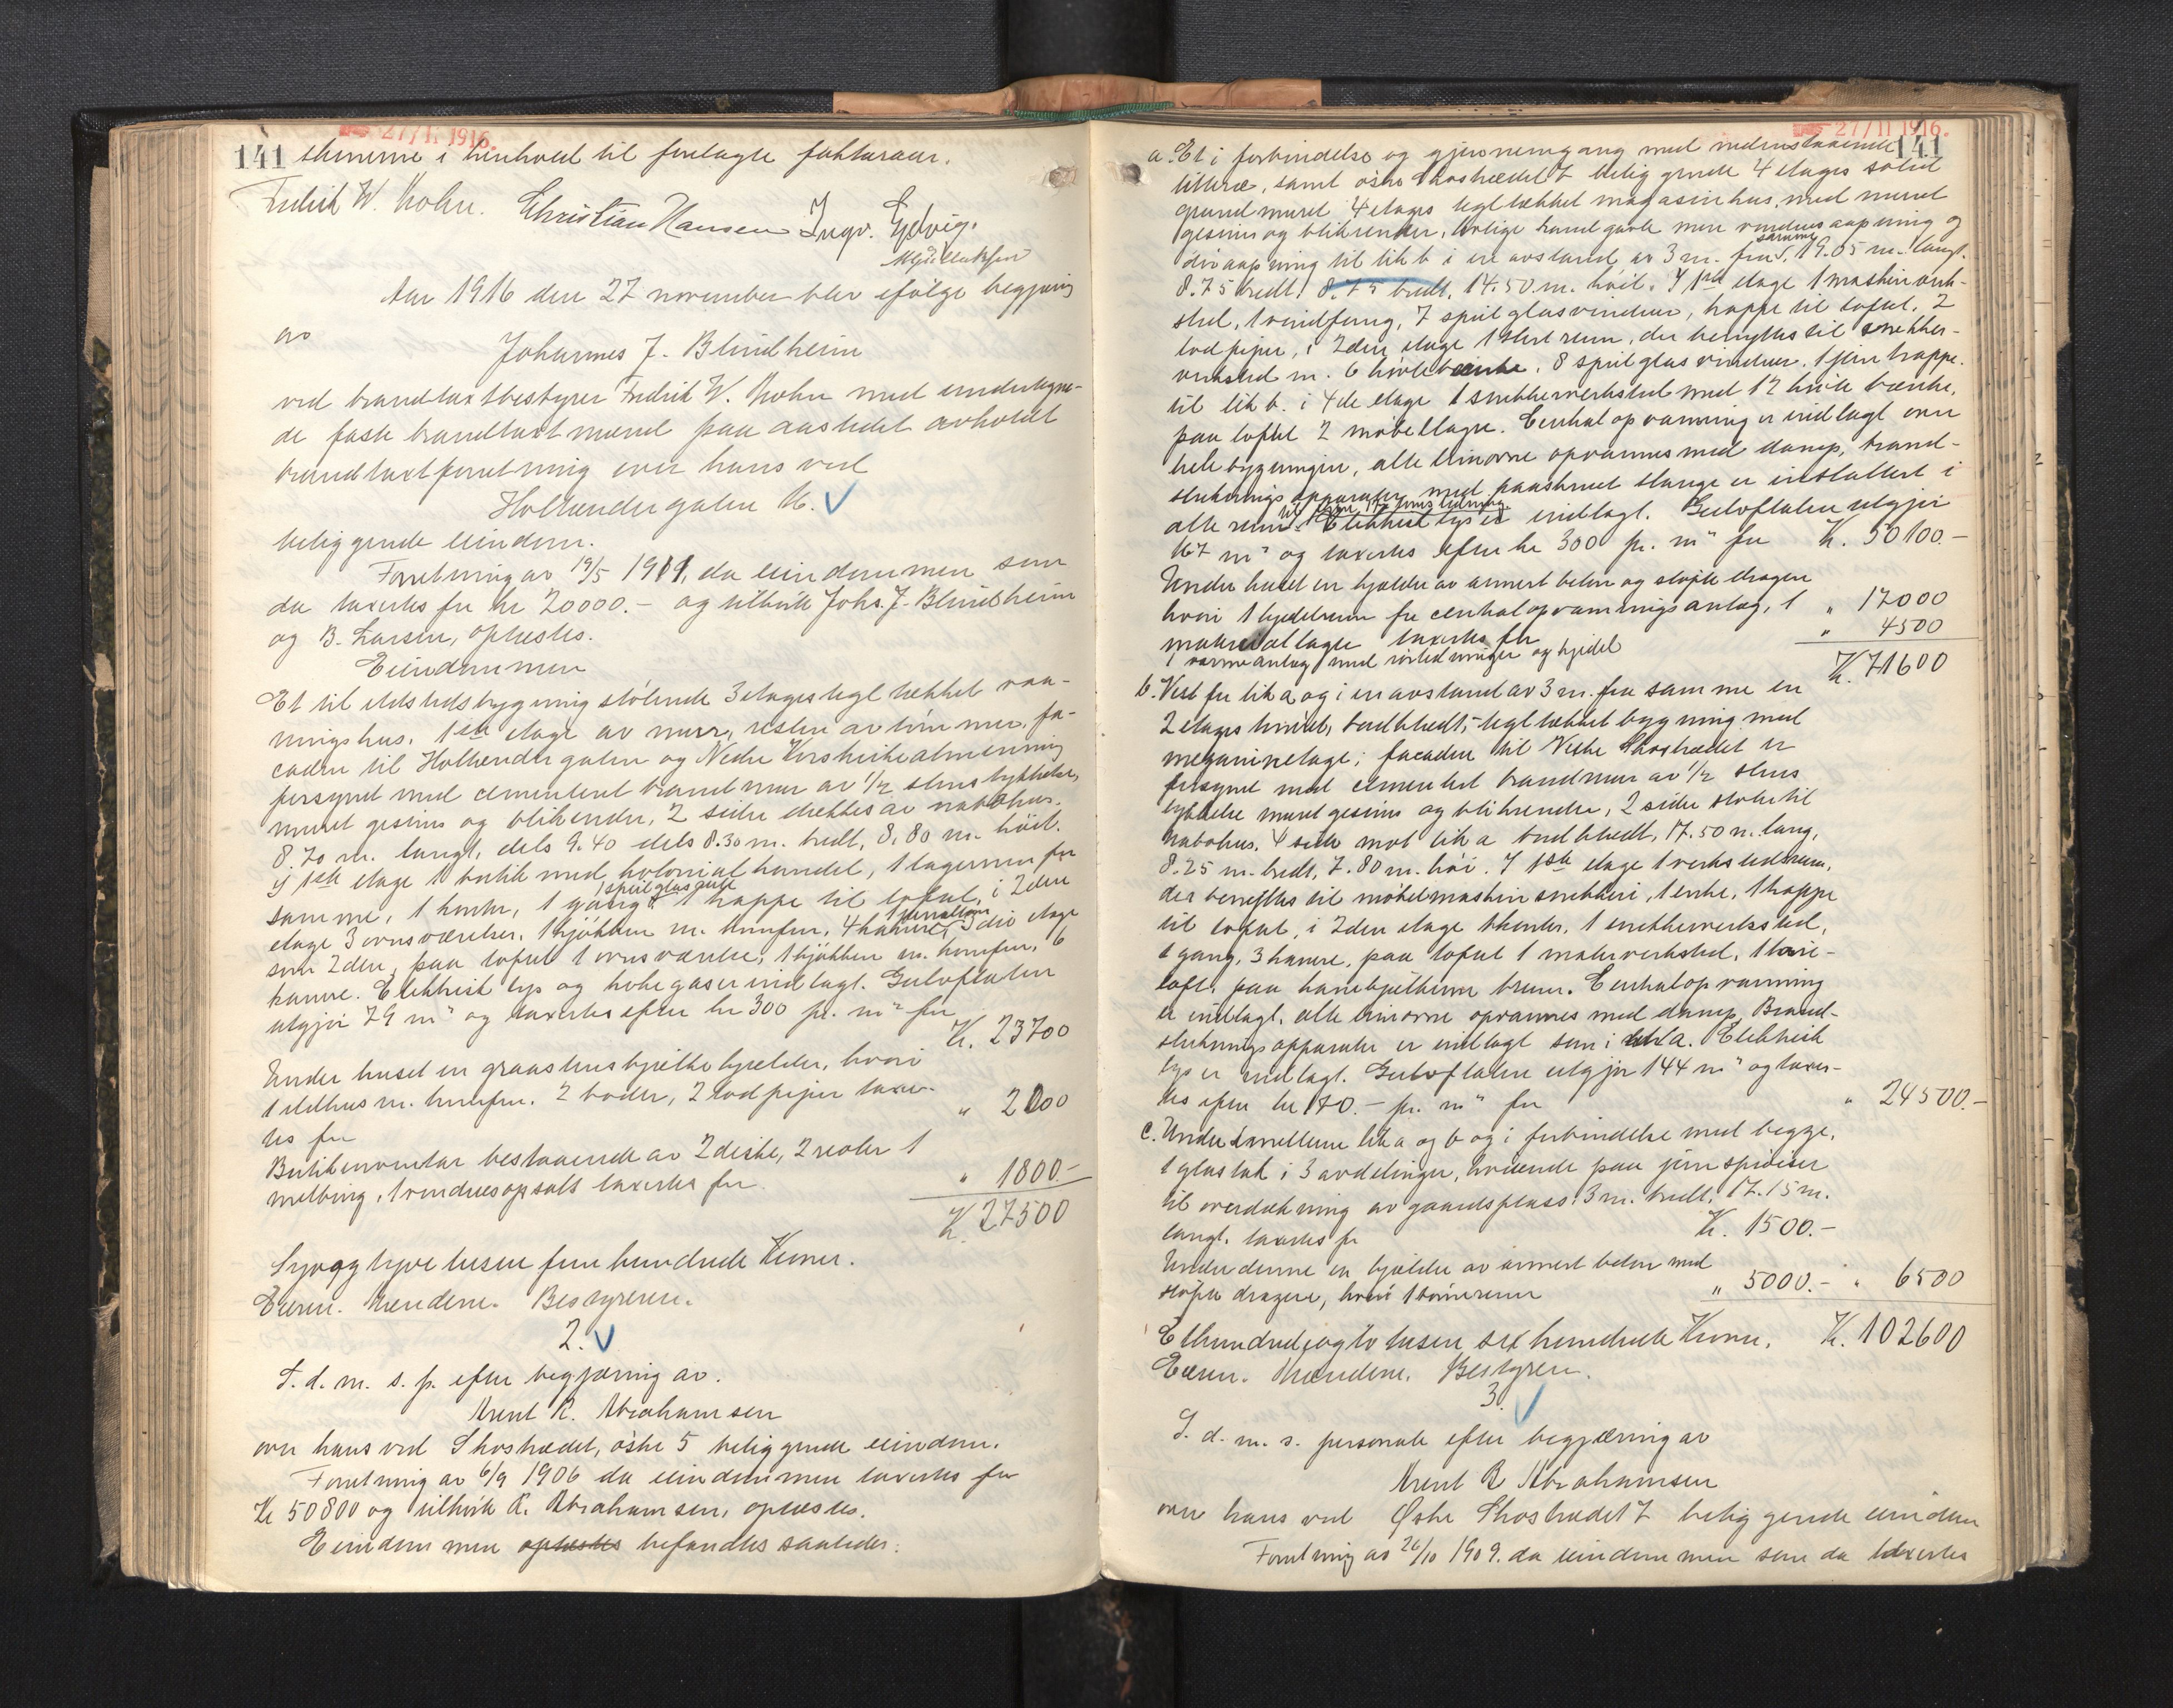 27/11 1916.
141 skinerne i henhold til fremlagte fakturaer.
Fredrik W. Kohn. Christian Hansen Ingv. Eydvig.
Aar 1916 den 27 november blev efølge begjæring
av
Johannes J. Blindheim
ved brandtaxtbestyrer Fredrik W. Kohn med undertegne-
de faste brandtaxtmænd paa aastedet avholdt
brandtaxtforretning over hans ved
Hollendergaten 16.
beliggende eiendom.
Forretning av 19/5 1911, da eiendommen som
da taxertes for kr 20000.- og tilhørte Johs. J. Blindheim
og B. Larsen, oplæstes.
Eiendommen
Et til ildstedsbygning stølende 3 etages tegltækket vaa-
ningshus. 1ste etage av mur, resten av tømmer, fa-
caden til Hollendergaten og Nedre Korskirkealmenning
forsynet med cementert brandmur av 1/2 stens tykkelse,
muret gesims og blikrender, 2 sider dækkes av nabohus.
8.70 m. langt, dels 9.40 dels 8.30 m. bredt, 8.80 m. høit.
I 1ste etage 1 butik med kolonialhandel, 1 lagerrum for
samme, 1 kontor, 1 gang, 1 speilglasrute 1 trappe til loftet, i 2den
etage 3 ovnsværelser, 1 kjøkken m. komfur, 4 kamre, 3die etage
som 2den, paa loftet 1 ovnsværelse, 1 kjøkken m. komfur, 6
kamre. Elektrisk lys og kokegas er indlagt. Gulvflaten
utgjør 79 m² og taxertes efter kr 300 pr. m² for Kr. 23700
Under huset en graastenshvælvet kjælder, hvori
1 ildhus m. komfur. 2 boder, 2 lodpiper taxer-
tes for " 2000
Butikinventar bestaaende av 2 diske, 2 reoler 1
melbing, 1 vinduesopsats taxertes for " 1800.-
Kr. 27500
Syvogtyve tusen fem hundrede Kroner.
Eieren. Mændene. Bestyreren.
2.
S. d. m. s. p. efter begjæring av.
Arent R. Abrahamsen
over hans ved Skostrædet, østre 5 beliggende eiendom.
Forretning av 6/9 1906 da eiendommen taxertes for
Kr 50800 og tilhørte R. Abrahamsen, oplæstes.
Eiendommen oplæstes befandtes saaledes:
27/11 1916.
141
a. Et i forbindelse og gjennemgang med nedenstaaende
litteræ, samt østre Skostrædet 7 beliggende 4 etages solid
grundmuret 4 etages tegltækket magasinhus, med muret
gesims og blikrender, brandgavle med vinduesaapning og
døraapning til litr b i en avstand av 3 m. fra samme, 19.05 m. langt.
8.75 bredt, 8.75 bredt, 14.50 m. høit. I 1ste etage 1 maskinverk-
sted, 1 vindfang, 7 speilglasvinduer, trappe til loftet, 2
lodpiper, i 2den etage 1 stort rum, der benyttes til snekker-
verksted m. 6 høvlebænke, 8 speilglasvinduer, 1 jerntrappe
til litr b. i 4de etage 1 snekkerverksted med 12 høvlebænke,
paa loftet 2 møbellagre. Centralopvarming er indlagt over
hele bygningen, alle limovne opvarmes med damp, brand-
sluknings apparater med paaskruet slange er installert i
alle rum. Elektrisk lys er indlagt. Gulvflaten utgjør
167 m² og taxertes efter kr 300 pr. m² for Kr. 50100.-
Under huset en kjælder av armert beton og støpte dragere
hvori 1 kjedelrum for centralopvarmingsanlæg, 1
materiallager taxertes for " 17000
1 varmeanlæg med rørledninger og kjedel " 4500
Kr. 71600
b. Vest for litr a og i en avstand av 3 m. fra samme en
2 etages tømret, bordklædt, tegltækket bygning med
mezaninetage; facaden til Vestre Skostrædet er
forsynet med cementert brandmur av 1/2 stens
tykkelse muret gesims og blikrender, 2 sider støter til
nabohus, 4 side mot litr a bordklædt, 17.50 m. lang,
8.25 m. bredt, 7.80 m. høi. I 1ste etage 1 verkstedsrum,
der benyttes til møbelmaskinsnekkeri, 1 entre, 1 trappe
til loftet, i 2den etage 1 kontor, 1 snekkerverksted,
1 gang, 3 kamre, paa loftet 1 malerverksted, 1 tørre-
loft, paa hanebjælkerne 1 rum. Centralopvarming
er indlagt, alle limovne opvarmes med damp, Brand-
slukningsapparater er indlagt som i litr a. Elektrisk
lys er indlagt. Gulvflaten utgjør 144 m² og taxer-
tes efter kr 170.- pr. m² for " 24500.-
c. Under arealene litr a og b og i forbindelse med begge,
1 glastak i 3 avdelinger, hvilende paa jernsprosser
til overdækning av gaardsplass: 3 m. bredt, 17.15 m.
langt, taxertes for Kr. 1500.-
Under denne en kjælder av armert beton med
støpte dragere, hvori 1 tørrerum " 5000.- " 6500
Ethundredeogto tusen sex hundrede Kroner. Kr. 102600
Eieren. Mændene. Bestyreren.
3.
S. d. m. s. personale efter begjæring av
Arent R Abrahamsen
over hans ved Østre Skostrædet 7 beliggende eiendom
Forretning av 26/10 1909. da eiendommen som da taxertes